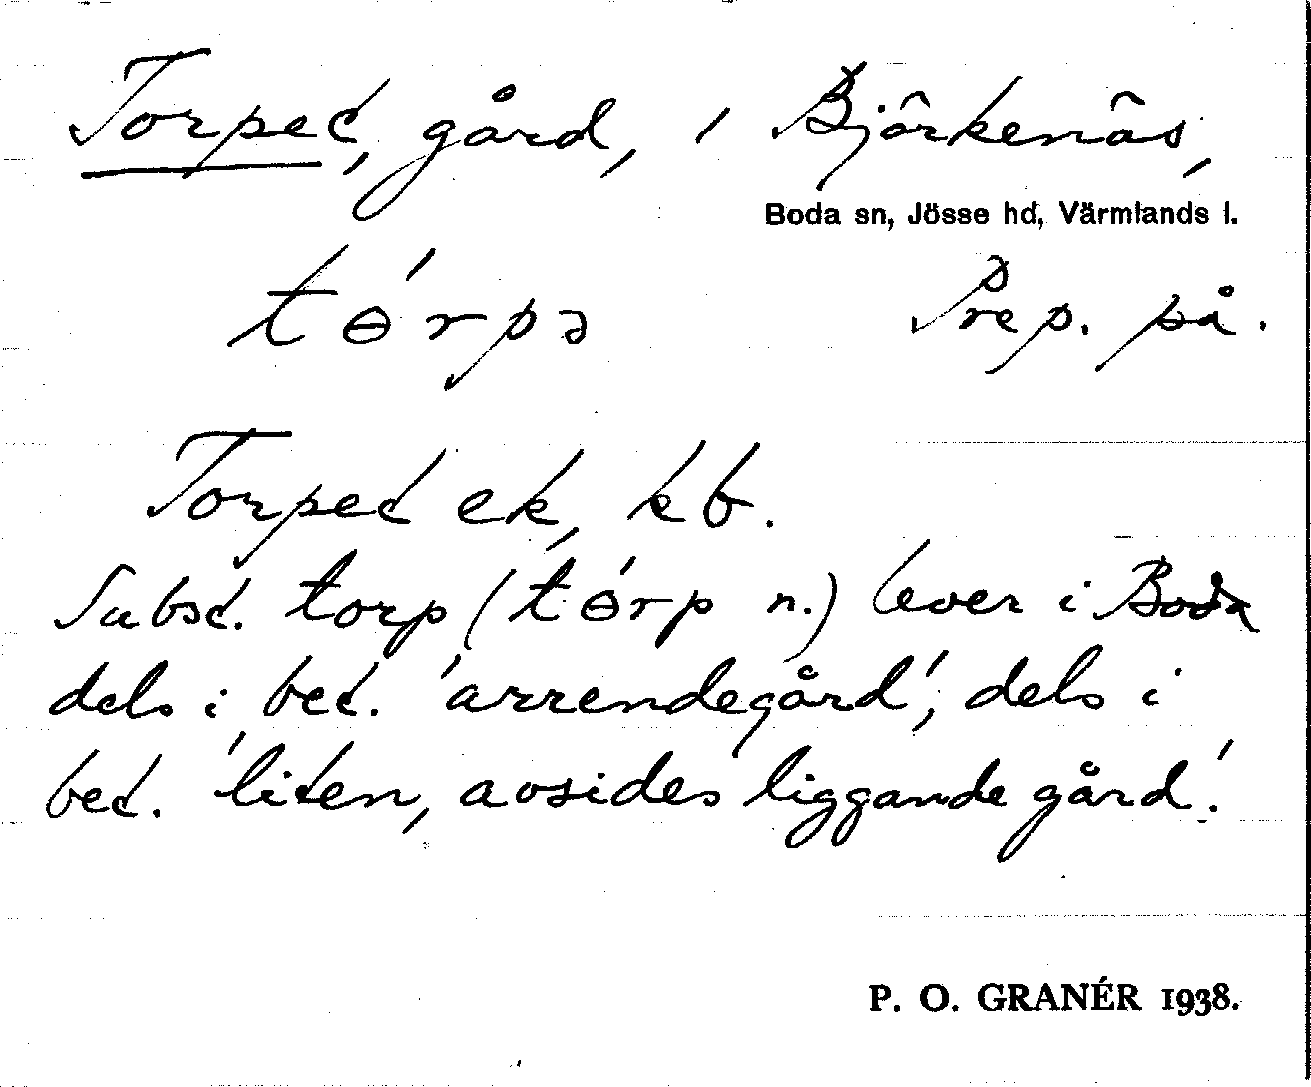 Torpet, gård, i Björkenäs,
Boda sn, Jösse hd, Värmlands l.
tɵ́rpə Prep. på.
Torpet ek, kb.
Subst. torp (tɵ́rp n.) lever i Boda
dels i bet. 'arrendegård', dels i
bet. 'liten, avsides liggande gård'.
P. O. GRANÉR 1938.